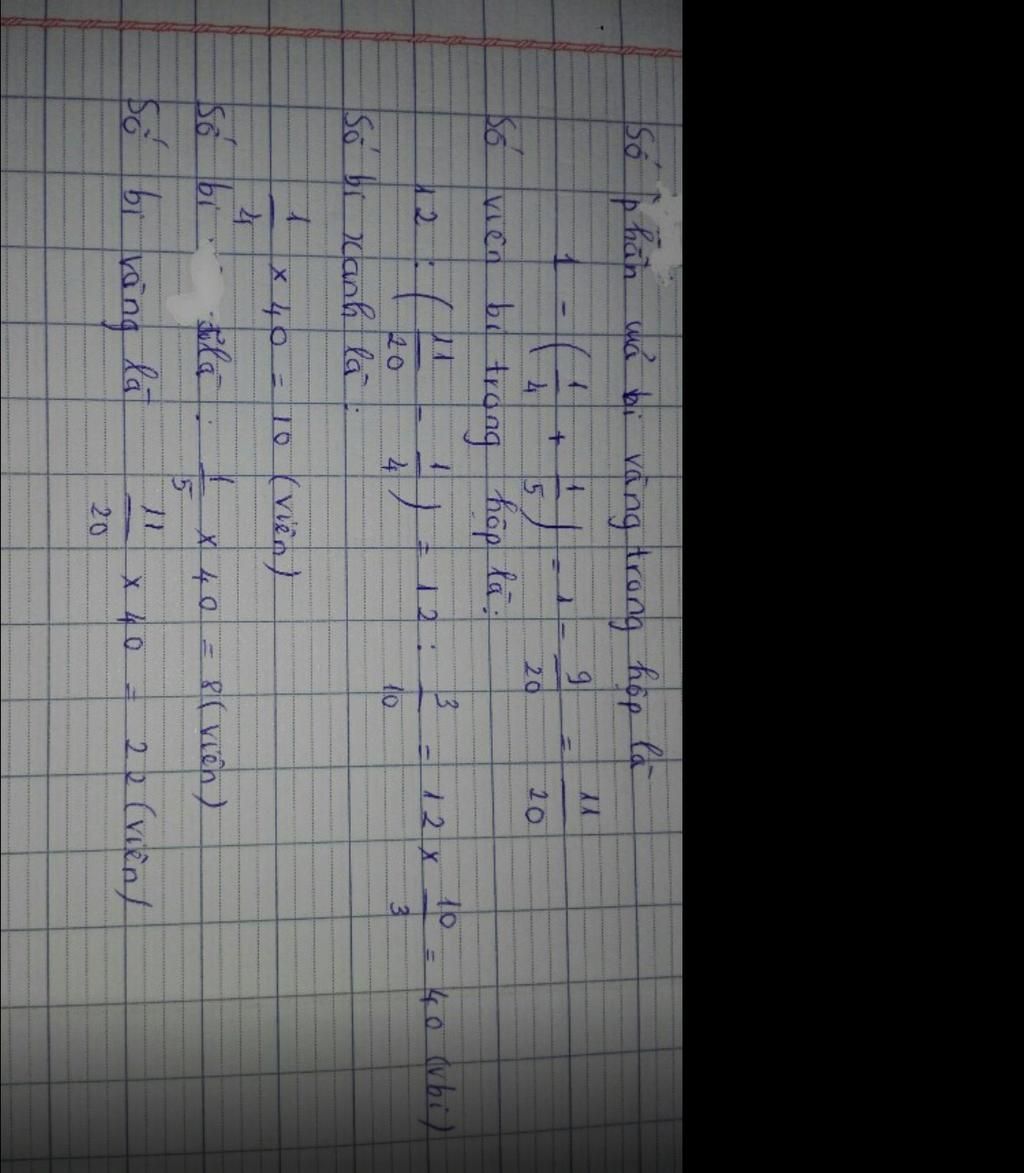 Số phần mà bi vàng trong hộp là
1 - (1/4 + 1/5) = 1 - 9/20 = 11/20
Số viên bi trong hộp là:
12 : (11/20 - 1/4) = 12 : 3/10 = 12 x 10/3 = 40 (vbi)
Số bi xanh là:
1/4 x 40 = 10 (viên)
Số bi là : 1/5 x 40 = 8 (viên)
Số bi vàng là 11/20 x 40 = 22 (viên)